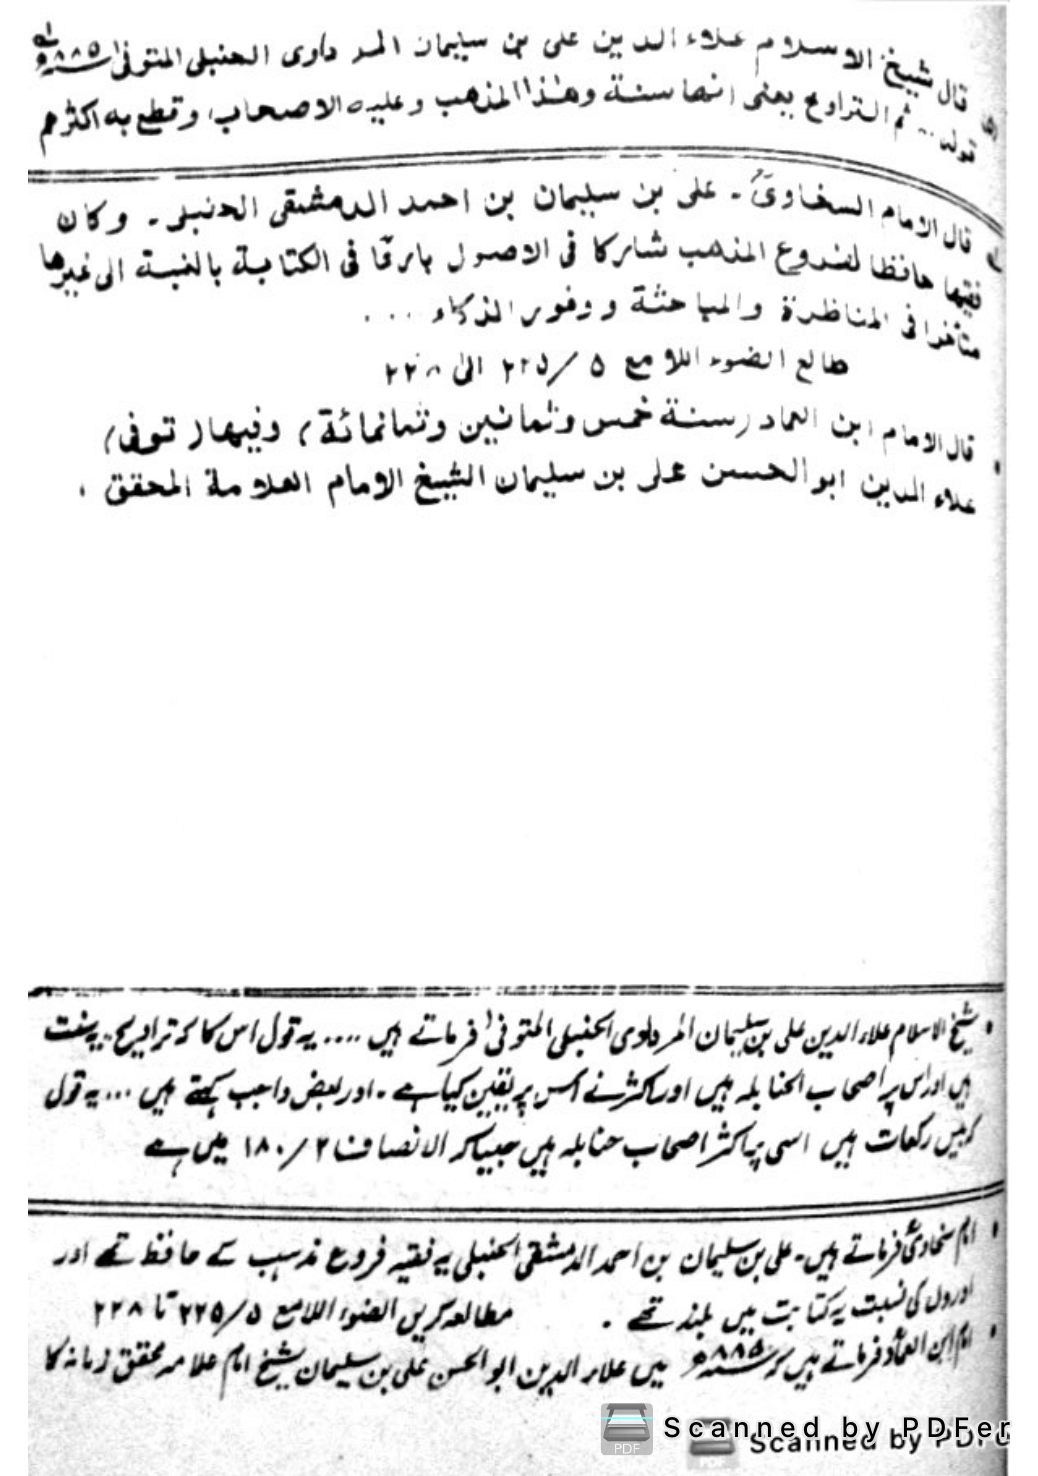 قال شيخ الاسلام علاء الدين على بن سليمان المرداوى الحنبلى المتوفىٰ ۸۸۵ھ
قوله ... ثم التراويح يعنى انها سنة وهذا المذهب وعليه الاصحاب وقطع به اكثرهم
قال الامام السخاوىؒ ۔ على بن سليمان بن احمد الدمشقى الحنبلى ۔ وكان
فقيها حافظا لفروع المذهب شاركا فى الاصول بارعًا فى الكتابة بالنسبة الى غيرها
متأخرا فى المناظرة والمباحثة ووفور الذكاء ...
طالع الضوء اللامع ۵/۲۲۵ الىٰ ۲۲۸
قال الامام ابن العماد (سنة خمس وثمانين وثمانمائة) وفيها (توفى)
علاء الدين ابوالحسن على بن سليمان الشيخ الامام العلامة المحقق .
شیخ الاسلام علاءالدین علی بن سلیمان المرداوی الحنبلی المتوفیٰ فرماتے ہیں .... یہ قول اس کا کہ تراویح یہ سنت
ہیں اور اس پر اصحاب الحنابلہ ہیں اور اکثر نے اس پر یقین کیا ہے ۔ اور بعض واجب کہتے ہیں ... یہ قول
کہ بیس رکعات ہیں اسی پر اکثر اصحاب حنابلہ ہیں جیسا کہ الانصاف ۲/۱۸۰ میں ہے
امام سخاویؒ فرماتے ہیں ۔ علی بن سلیمان بن احمد الدمشقی الحنبلی یہ فقیہ فروع مذہب کے حافظ تھے اور
اوروں کی نسبت یہ کتابت میں بلند تھے . مطالعہ کریں الضوء اللامع ۵/۲۲۵ تا ۲۲۸
امام ابن العمادؒ فرماتے ہیں کہ ۸۸۵ھ میں علاء الدین ابو الحسن علی بن سلیمان شیخ امام علامہ محقق زمانہ کا
PDF Scanned by PDFer
Scanned by PDFe